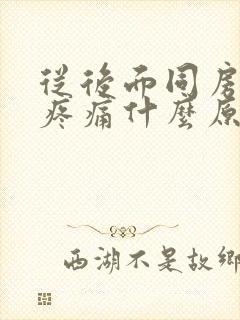 從後面同房
疼痛什麼原
西湖不是故鄉